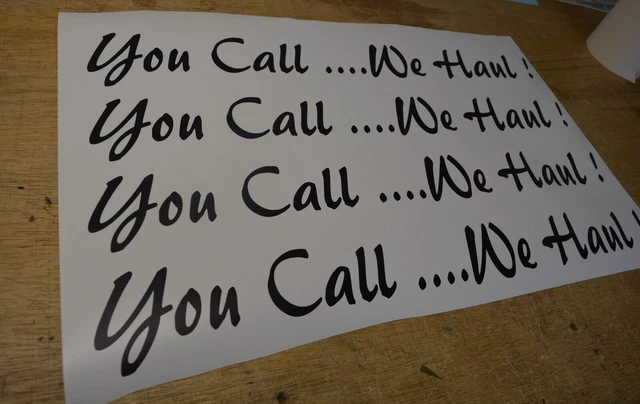 You Call ....We Haul !
You Call ....We Haul !
You Call ....We Haul !
You Call ....We Haul !